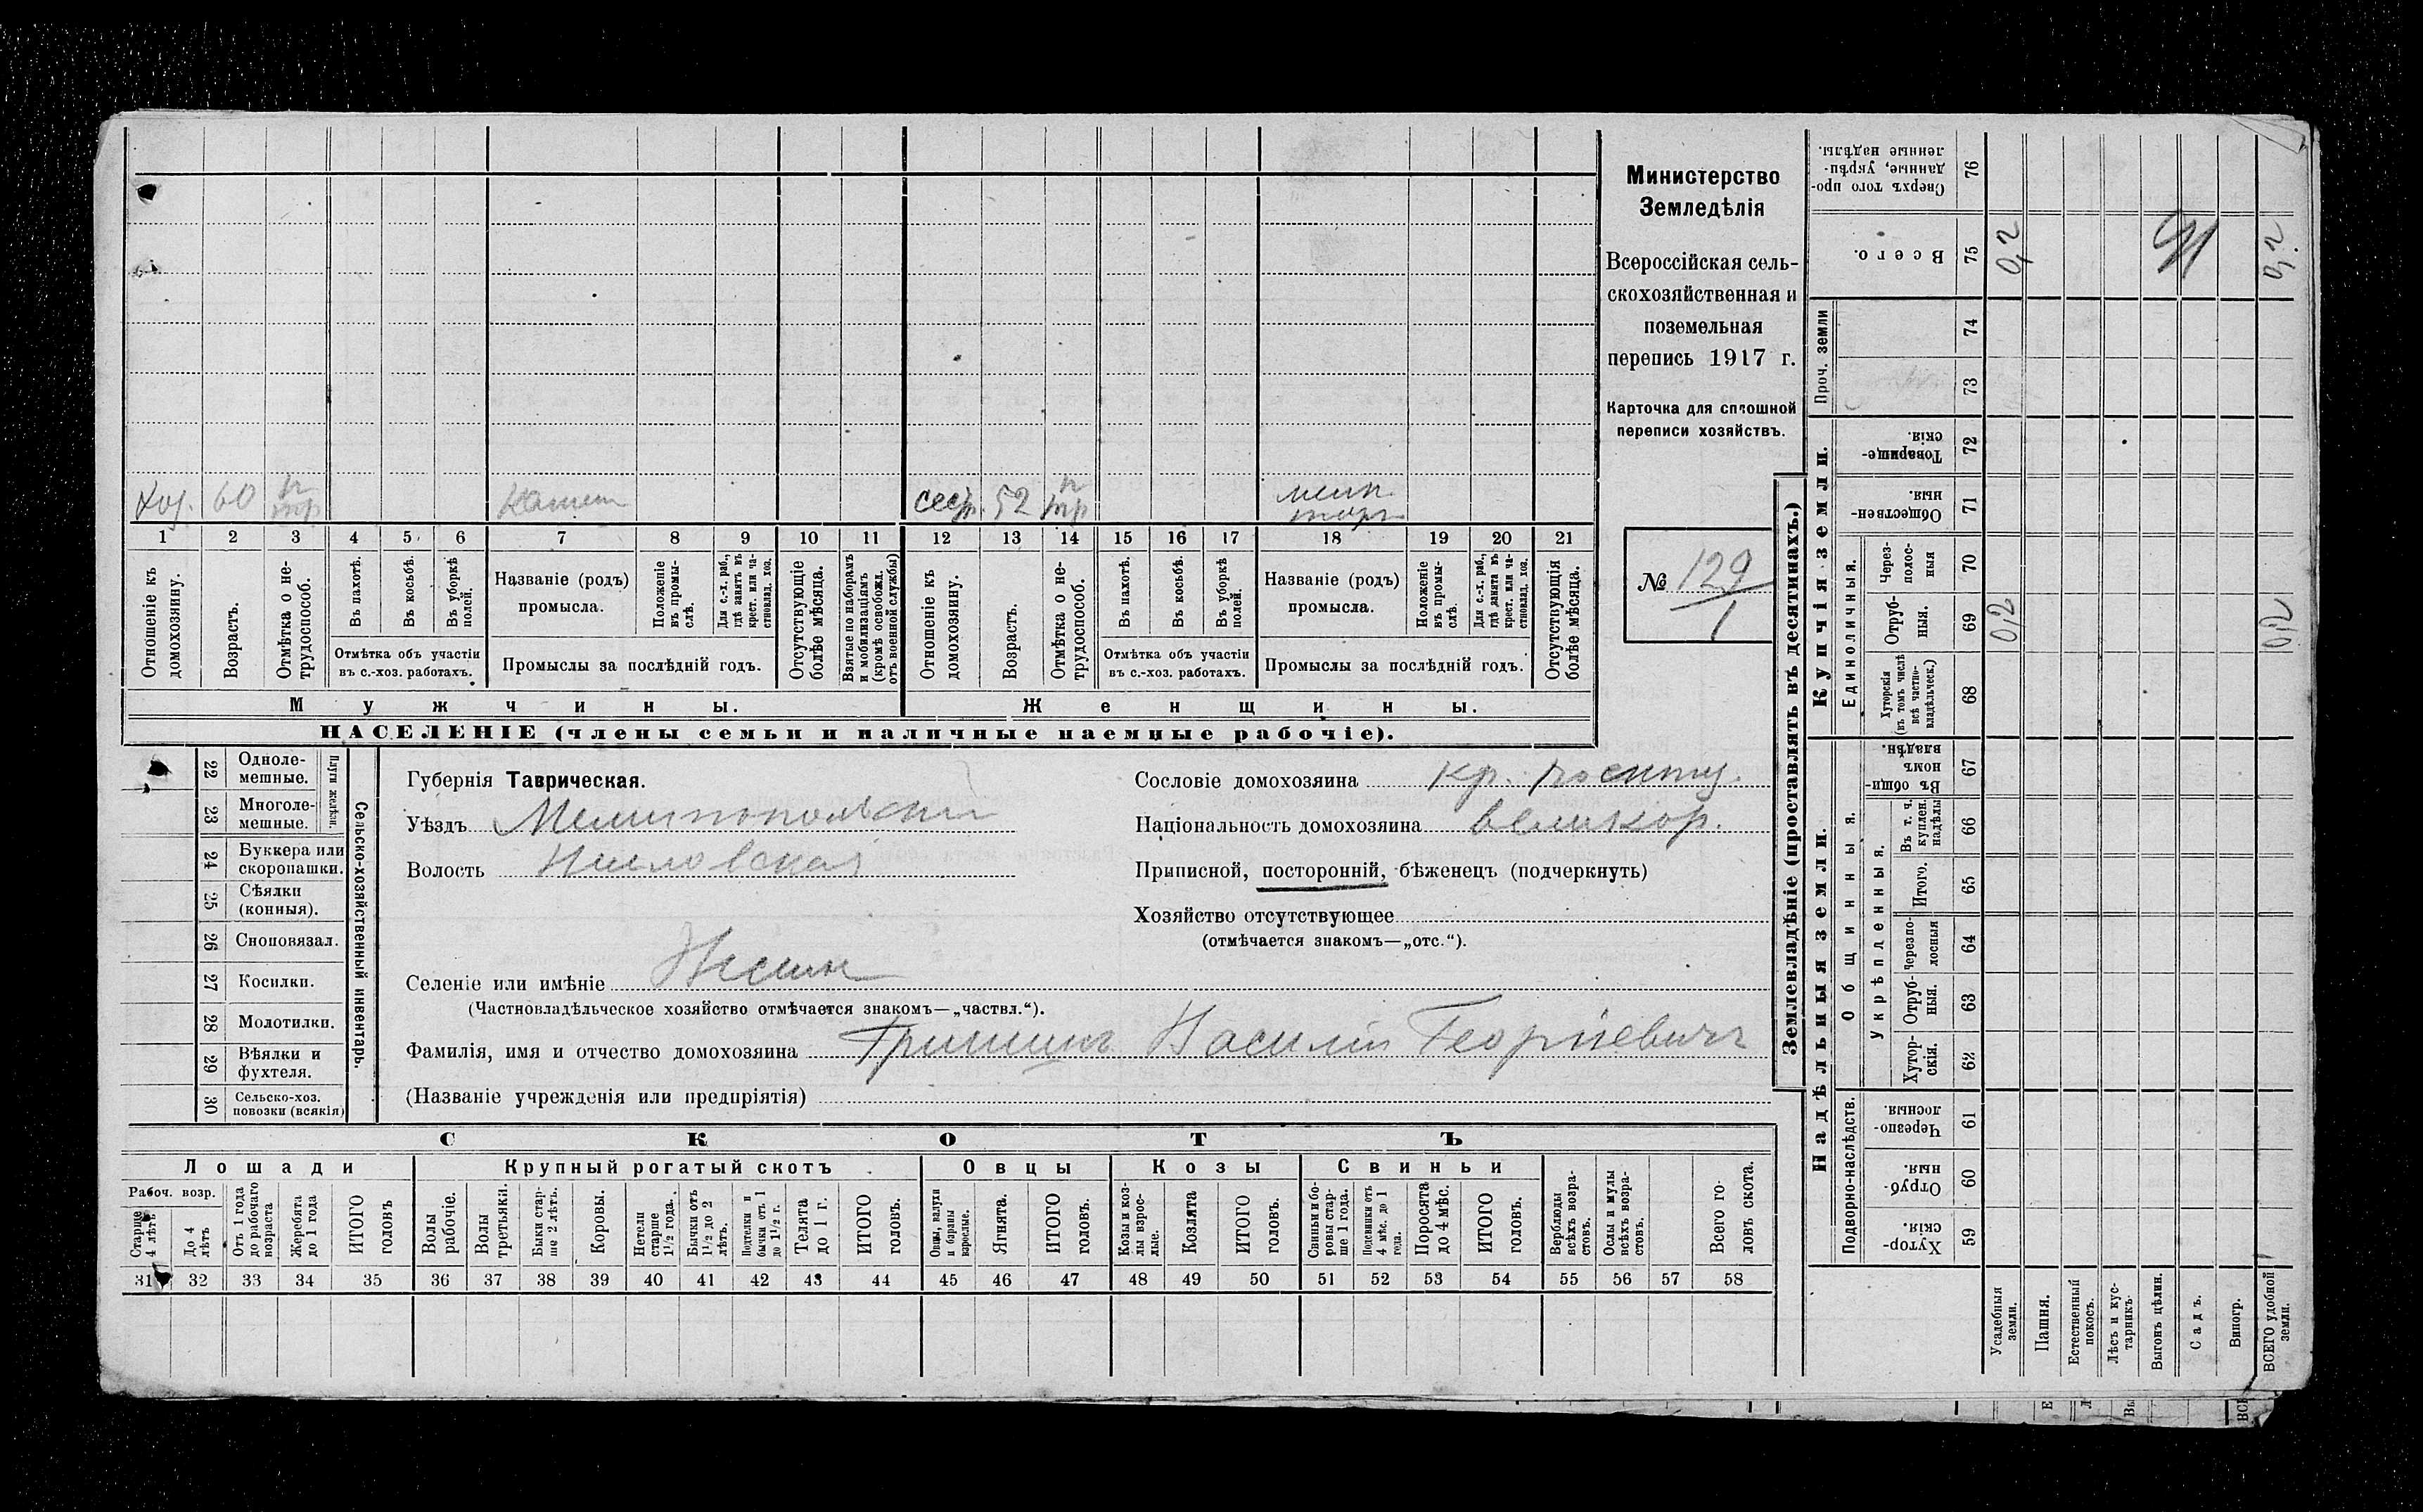 хоз. 60 н тр сест. 52 н тр мелк. торг.
1 2 3 4 5 6 7 8 9 10 11 12 13 14 15 16 17 18 19 20 21
Отношеніе къ домохозяину.
Возрастъ.
Отмѣтка о не-трудоспособ.
Въ пахотѣ.
Въ косьбѣ.
Въ уборкѣ полей.
Отмѣтка объ участіи
въ с.-хоз. работахъ.
Названіе (родъ)
промысла.
Положеніе въ промы-слѣ.
Для с.-х. раб., гдѣ занятъ въ крест. или ча-стновлад. хоз.
Промыслы за послѣдній годъ.
Отсутствующіе болѣе мѣсяца.
Взятые по наборамъ и мобилизаціямъ (кромѣ освобожд. отъ военной службы)
Отношеніе къ домохозяину.
Возрастъ.
Отмѣтка о не-трудоспособ.
Въ пахотѣ.
Въ косьбѣ.
Въ уборкѣ полей.
Отмѣтка объ участіи
въ с.-хоз. работахъ.
Названіе (родъ)
промысла.
Положеніе въ промы-слѣ.
Для с.-х. раб., гдѣ занята въ крест. или ча-стновлад. хоз.
Промыслы за послѣдній годъ.
Отсутствующія болѣе мѣсяца.
Мужчины.
Женщины.
НАСЕЛЕНІЕ (члены семьи и наличные наемные рабочіе).
Министерство
Земледѣлія
Всероссійская сель-
скохозяйственная и
поземельная
перепись 1917 г.
Карточка для сплошной
переписи хозяйствъ.
№ 129
1
22 Одноле-мешные.
23 Многоле-мешные.
Плуги желѣзн.
24 Буккера или скоропашки.
25 Сѣялки (конныя).
26 Сноповязал.
27 Косилки.
28 Молотилки.
29 Вѣялки и фухтеля.
30 Сельско-хоз. повозки (всякія)
Сельско-хозяйственный инвентарь.
Губернія Таврическая.
Уѣздъ Мелитопольскій
Волость
Селеніе или имѣніе
(Частновладѣльческое хозяйство отмѣчается знакомъ—„частвл.“).
Фамилія, имя и отчество домохозяина Гришинъ Василій Георгіевичъ
(Названіе учрежденія или предпріятія)
Сословіе домохозяина кр.
Національность домохозяина великор.
Приписной, посторонній, бѣженецъ (подчеркнуть)
Хозяйство отсутствующее
(отмѣчается знакомъ—„отс.“).
СКОТЪ
Лошади
Крупный рогатый скотъ
Овцы
Козы
Свиньи
Рабоч. возр.
Старше 4 лѣтъ
До 4 лѣтъ
Отъ 1 года до рабочаго возраста
Жеребята до 1 года
ИТОГО головъ
Волы рабочіе.
Волы третьяки.
Быки стар-ше 2 лѣтъ.
Коровы.
Нетели старше 1½ года.
Бычки отъ 1½ до 2 лѣтъ.
Подтелки и бычки отъ 1 до 1½ г.
Телята до 1 г.
ИТОГО головъ.
Овцы, валухи и бараны взрослые.
Ягнята.
ИТОГО головъ.
Козы и коз-лы взрос-лые.
Козлята
ИТОГО головъ.
Свиньи и бо-ровы стар-ше 1 года.
Подсвинки отъ 4 мѣс. до 1 года.
Поросята до 4 мѣс.
ИТОГО головъ.
Верблюды всѣхъ возра-стовъ.
Ослы и мулы всѣхъ возра-стовъ.
Всего го-ловъ скота.
31 32 33 34 35 36 37 38 39 40 41 42 43 44 45 46 47 48 49 50 51 52 53 54 55 56 57 58
Землевладѣніе (проставлять въ десятинахъ.)
Надѣльныя земли.
Купчія земли.
Проч. земли
Подворно-наслѣдств.
Общинныя.
Укрѣпленныя.
Единоличныя.
Сверхъ того про-данные, укрѣп-ленные надѣлы. 76
Всего. 75 0,2 0,2
74
73
Товарище-скія. 72
Обществен-ныя. 71
Через-полос-ныя 70
Отруб-ныя. 69 0,2 0,2
Хуторскія (въ томъ числѣ всѣ частно-владѣльческ.) 68
Въ общи-номъ владѣн. 67
Въ т. ч. куплен. надѣлы 66
Итого. 65
Черезпо-лосныя 64
Отруб-ныя. 63
Хутор-скія. 62
Черезпо-лосныя. 61
Отруб-ныя. 60
Хутор-скія. 59
Усадебныя земли.
Пашня.
Естественный покосъ.
Лѣсъ и кус-тарникъ.
Выгонъ цѣлин.
Садъ.
Виногр.
ВСЕГО удобной земли.